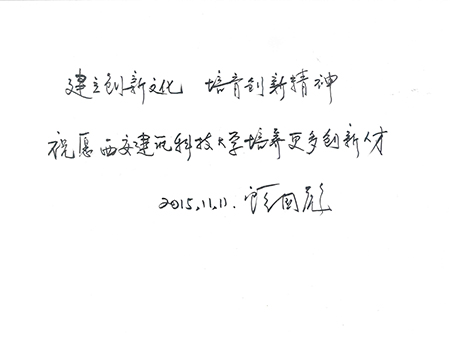 建立创新文化 培育创新精神
祝愿西安建筑科技大学培养更多创新人才
2015.11.11. 顾国彪